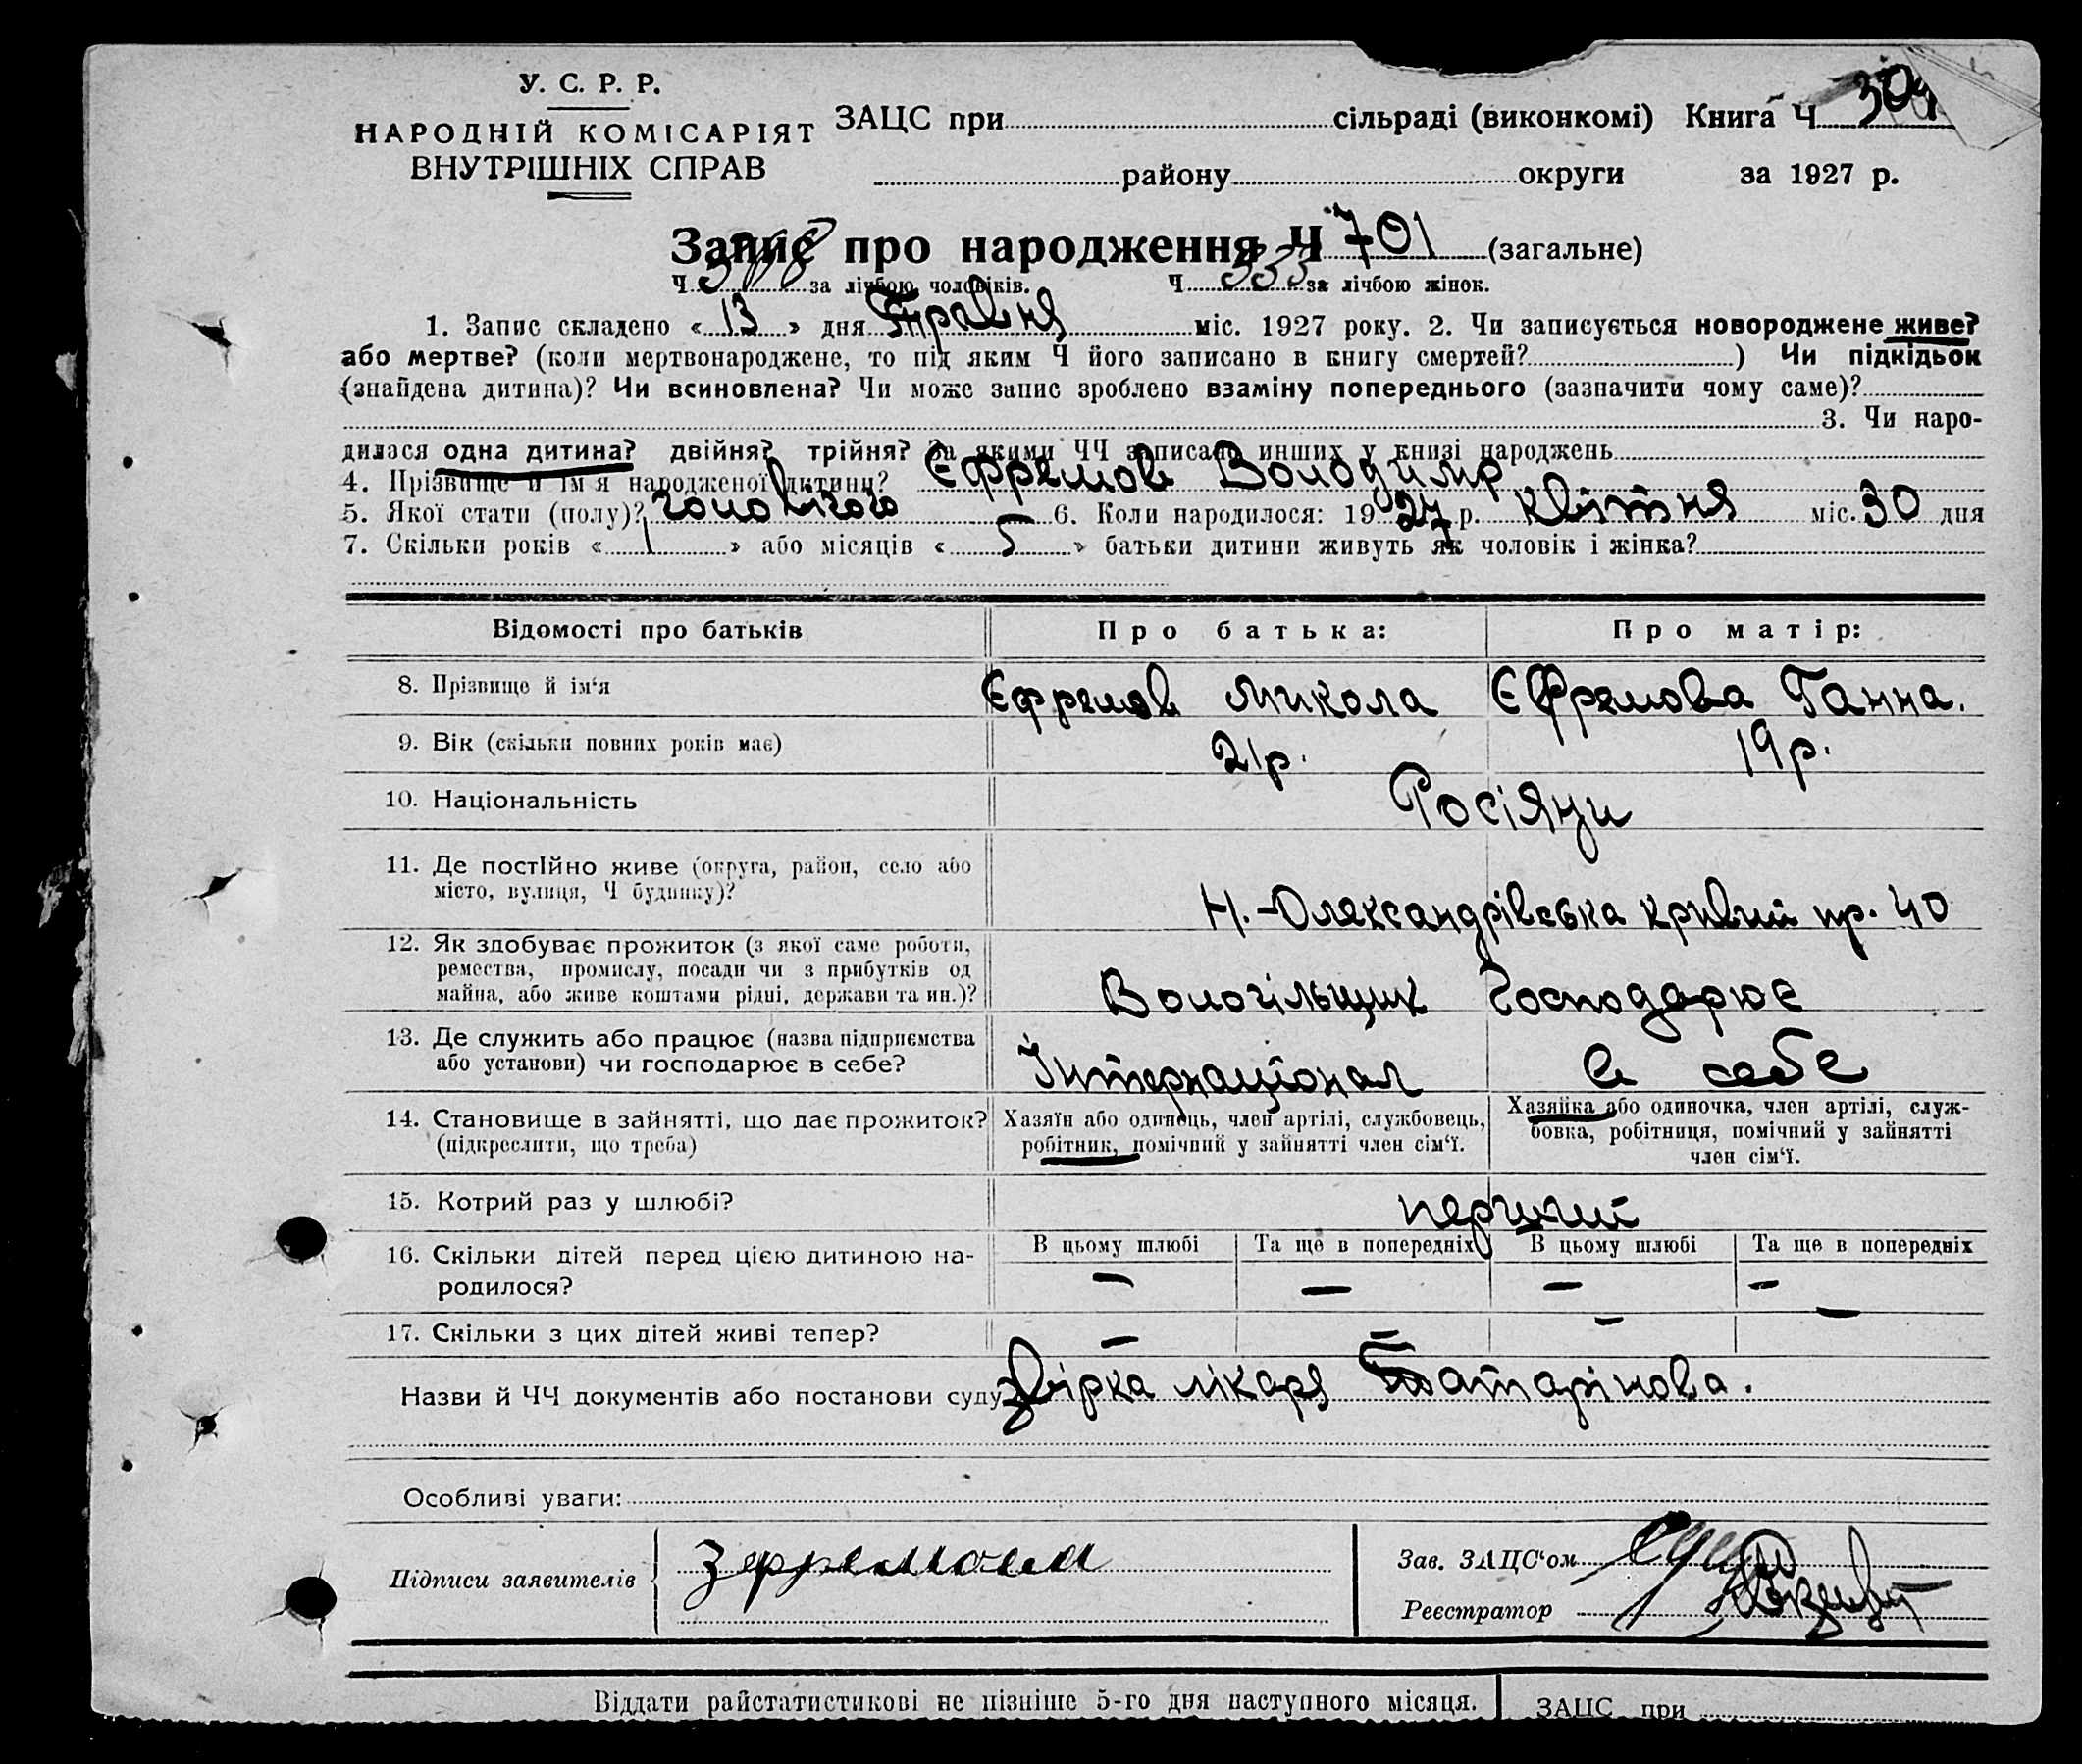 У. С. Р. Р.
НАРОДНІЙ КОМІСАРІЯТ
ВНУТРІШНІХ СПРАВ
ЗАЦС при сільраді (виконкомі) Книга Ч 304
району округи за 1927 р.
Запис про народження Ч 701 (загальне)
Ч 368 за лічбою чоловіків. Ч 333 за лічбою жінок.
1. Запис складено « 13 » дня Травня міс. 1927 року. 2. Чи записується новороджене живе?
або мертве? (коли мертвонароджене, то під яким Ч його записано в книгу смертей? ) Чи підкідьок
(знайдена дитина)? Чи всиновлена? Чи може запис зроблено взаміну попереднього (зазначити чому саме)?
3. Чи наро-
дилася одна дитина? двійня? трійня? За якими ЧЧ записано инших у книзі народжень
4. Прізвище й ім'я народженої дитини? Єфремов Володимир
5. Якої стати (полу)? чоловічого 6. Коли народилося: 1927 р. квітня міс. 30 дня
7. Скільки років « 1 » або місяців « 5 » батьки дитини живуть як чоловік і жінка?
Відомості про батьків Про батька: Про матір:
8. Прізвище й ім'я Єфремов Микола Єфремова Ганна.
9. Вік (скільки повних років має) 21р. 19р.
10. Національність Росіяни
11. Де постійно живе (округа, район, село або
місто, вулиця, Ч будинку)?
Н.-Олександрівська кривий пр. 40
12. Як здобуває прожиток (з якої саме роботи,
ремества, промислу, посади чи з прибутків од
майна, або живе коштами рідні, держави та ин.)?
Господарює
13. Де служить або працює (назва підприємства
або установи) чи господарює в себе?
Інтернаціонал в себе
14. Становище в зайнятті, що дає прожиток?
(підкреслити, що треба)
Хазяїн або одинець, член артілі, службовець,
робітник, помічний у зайнятті член сім'ї.
Хазяйка або одиночка, член артілі, служ-
бовка, робітниця, помічний у зайнятті
член сім'ї.
15. Котрий раз у шлюбі? перший
16. Скільки дітей перед цією дитиною на-
родилося?
В цьому шлюбі Та ще в попередніх В цьому шлюбі Та ще в попередніх
— — — —
17. Скільки з цих дітей живі тепер? — — — —
Назви й ЧЧ документів або постанови суду Звірка лікаря Татарінова.
Особливі уваги:
Підписи заявителів
Зав. ЗАЦС'ом
Реєстратор
Віддати райстатистикові не пізніше 5-го дня наступного місяця. ЗАЦС при